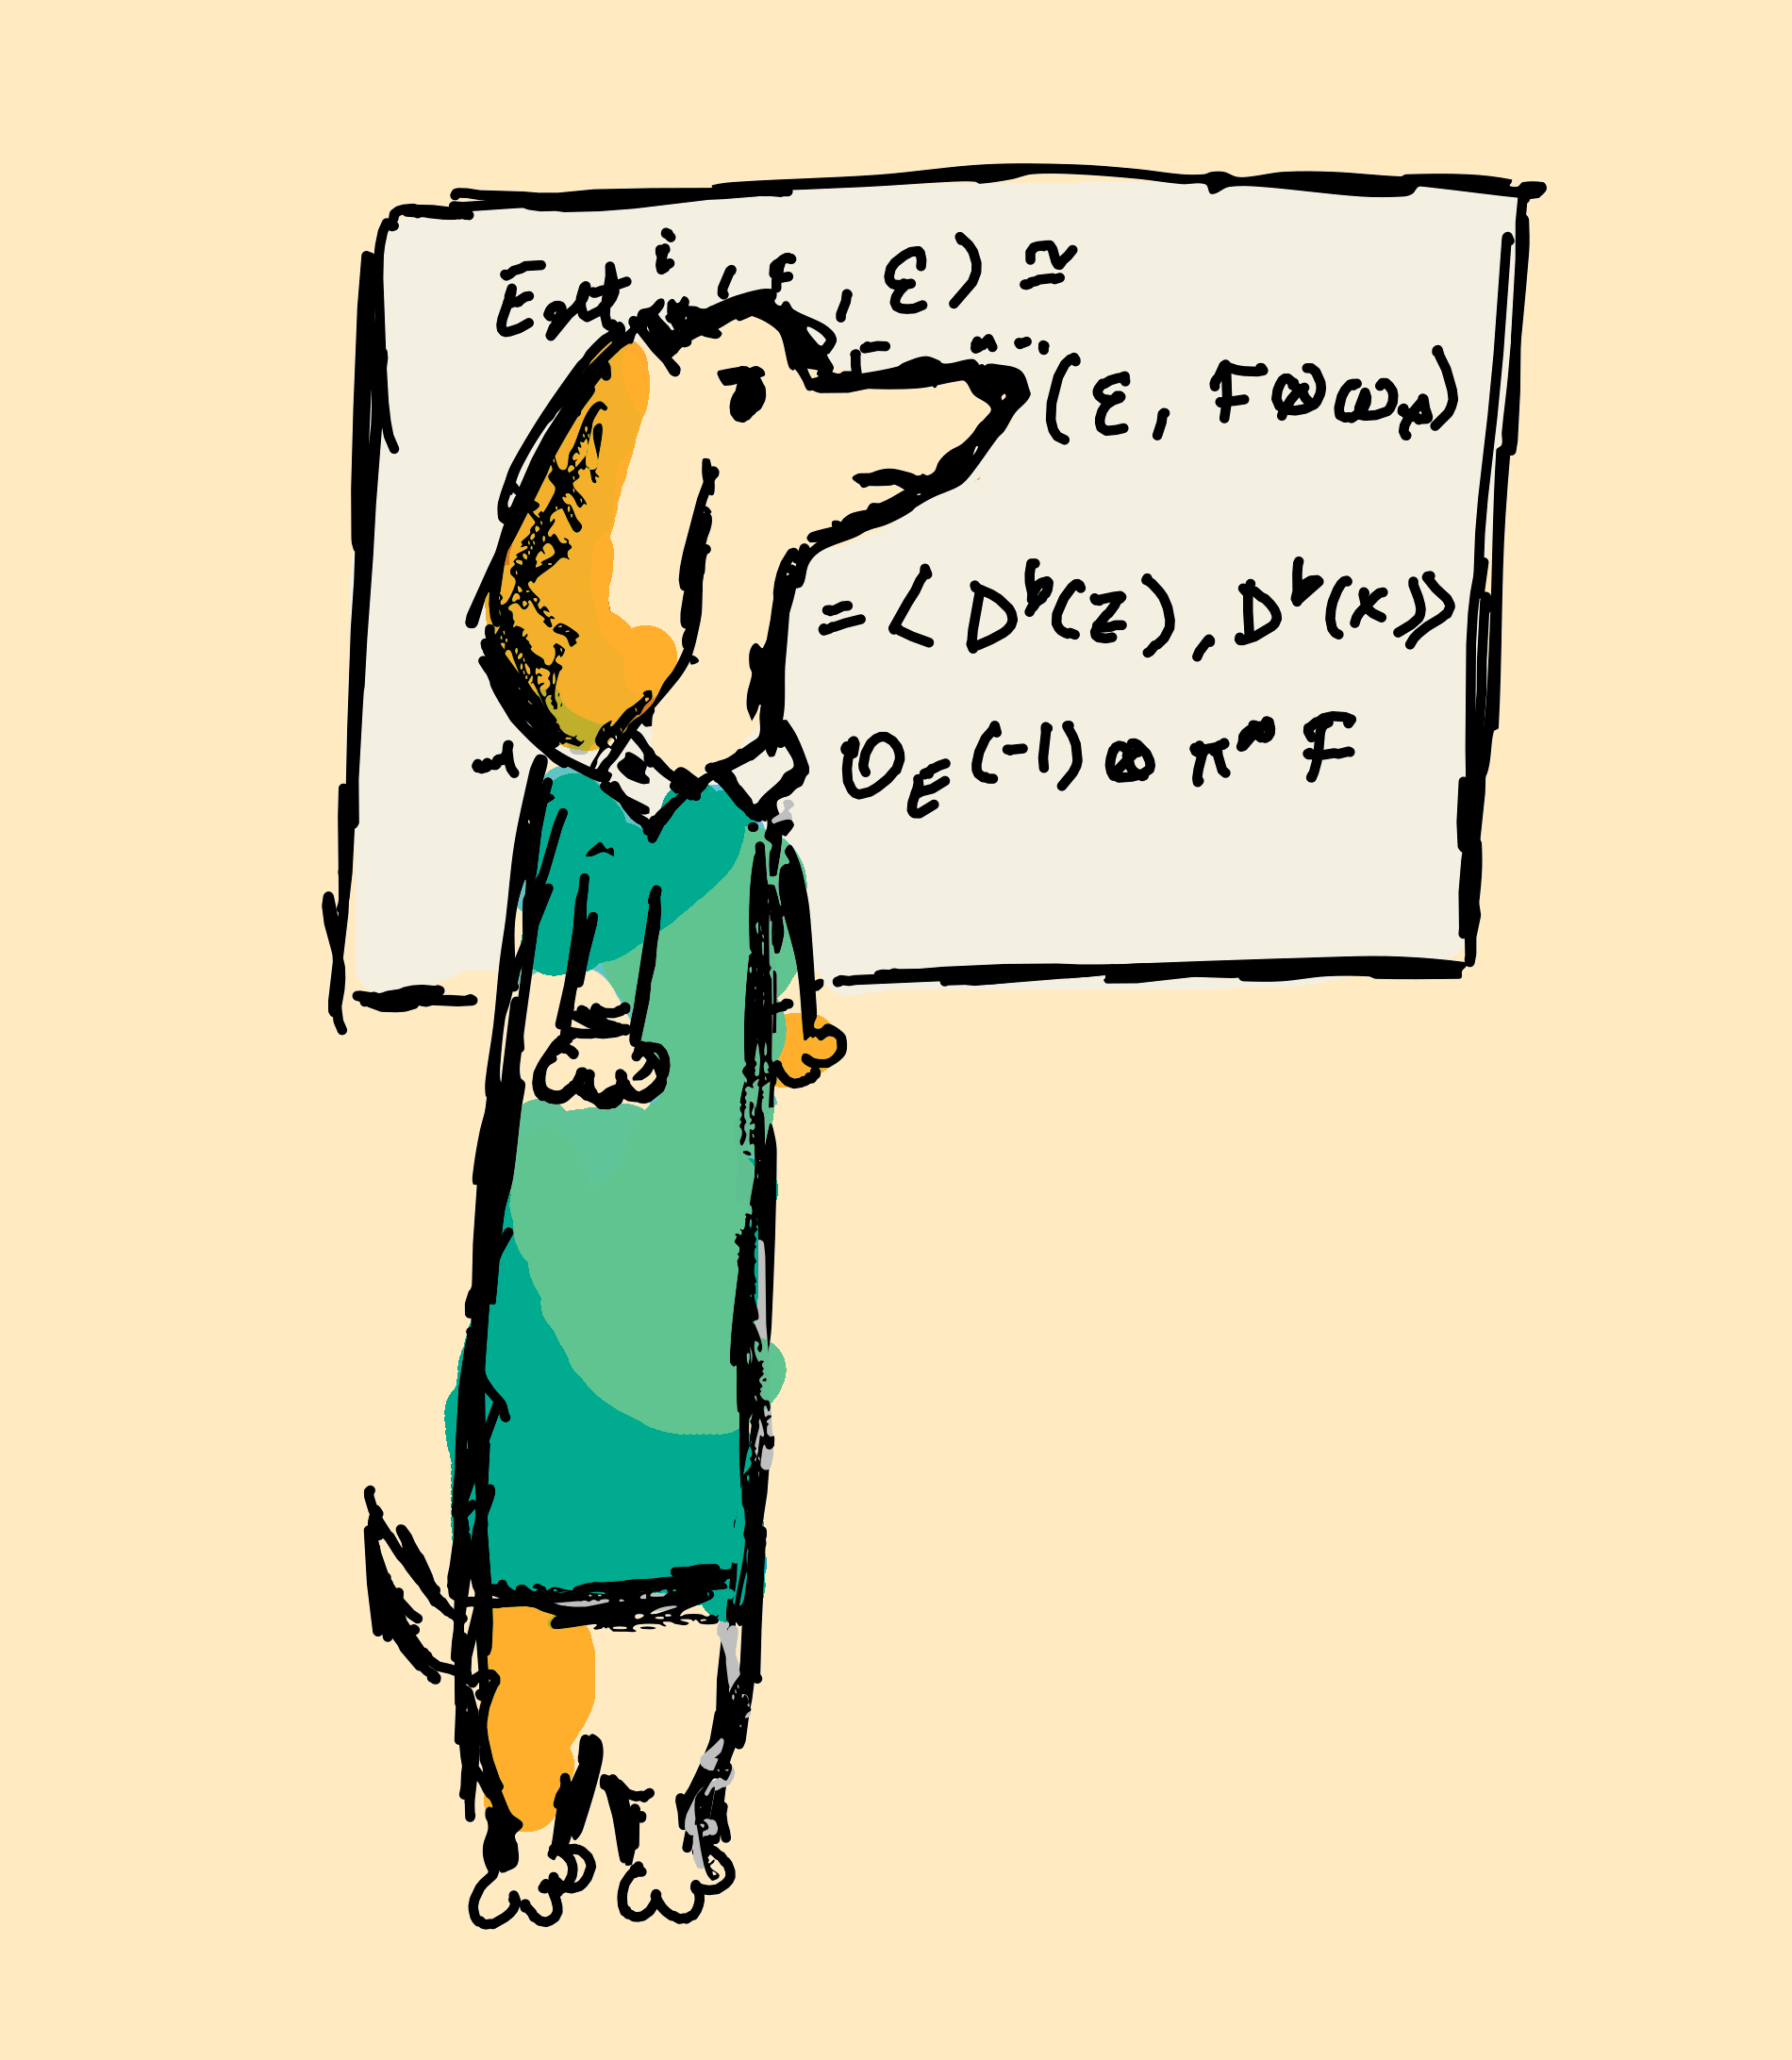 Ext^i (F, ε) ≅
(ε, F⊗ω_X)
= < D^b(Z), D^b(X)>
O_E(-1) ⊗ π^* F